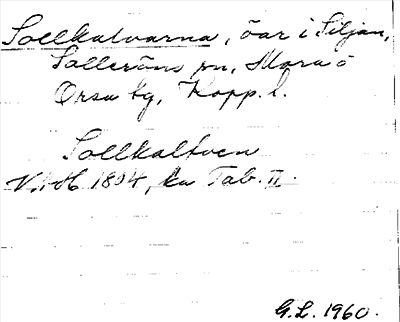 Sollkalvarna, öar i Siljan,
Solleröns sn, Mora o
Orsa tg, Kopp. l.
Sollkalfven
1894, Tab. II.
G.L. 1960.